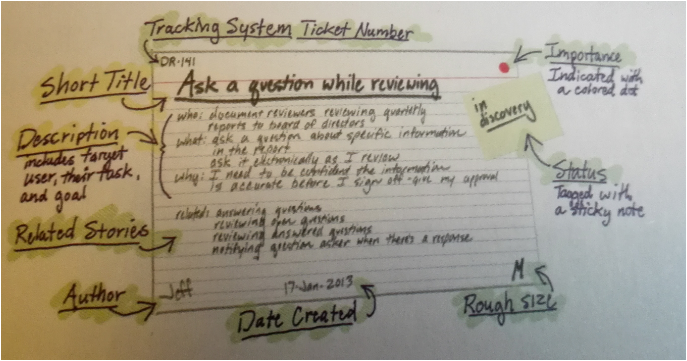 Tracking System Ticket Number
DR-141
Importance
Indicated with
a colored dot
Short Title
Ask a question while reviewing
in
discovery
Description
includes target
user, their task,
and goal
who: document reviewers reviewing quarterly
reports to board of directors
what: ask a question about specific information
in the report
ask it electronically as I review
why: I need to be confident the information
is accurate before I sign off - give my approval
Status
Tagged with
a sticky note
Related Stories
related: answering questions
reviewing open questions
reviewing answered questions
notifying question asker when there's a response
Author
Jeff
17-Jan-2013
M
Date Created
Rough size